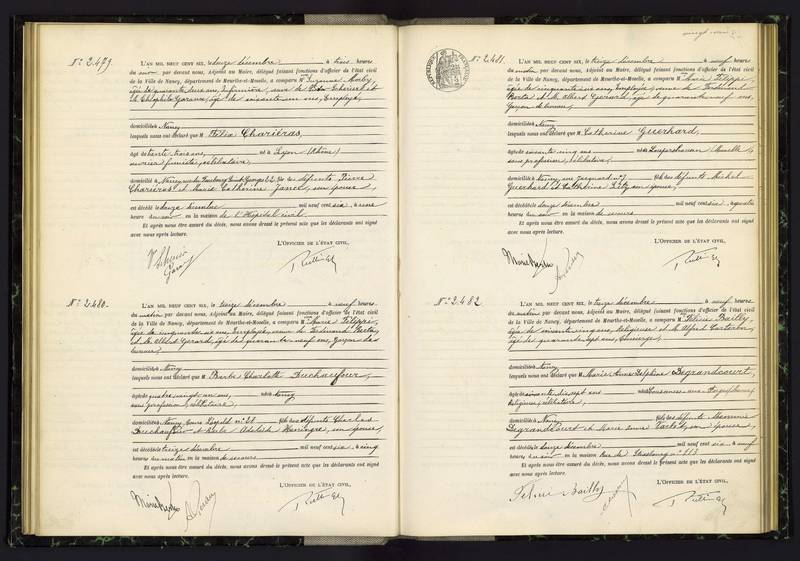 N° 2.479
L'AN MIL NEUF CENT SIX, le douze décembre à trois heures
du soir par devant nous, Adjoint au Maire, délégué faisant fonctions d'officier de l'état civil
de la Ville de Nancy, département de Meurthe-et-Moselle, a comparu M
âgé de quarante deux ans, infirmière, rue de et
employé,
domiciliés à Nancy
lesquels nous ont déclaré que M Félix Chariéras,
âgé de trente trois ans, né à Lyon (Rhône)
ouvrier fumiste, célibataire,
domicilié à Nancy, rue du Faubourg Saint Georges fils de défunts Pierre
Chariéras et Marie Catherine Jancel, son épouse,
est décédé le douze décembre mil neuf cent six, à une
heure du soir en la maison de l'Hôpital civil
Et après nous être assuré du décès, nous avons dressé le présent acte que les déclarants ont signé
avec nous après lecture.
L'OFFICIER DE L'ÉTAT CIVIL,
N° 2.480
L'AN MIL NEUF CENT SIX, le treize décembre à neuf heures
du matin par devant nous, Adjoint au Maire, délégué faisant fonctions d'officier de l'état civil
de la Ville de Nancy, département de Meurthe-et-Moselle, a comparu M Marie
âgée de cinquante six ans, Employée, veuve de Ferdinand
et M. Albert Gérard, âgé de quarante neuf ans, Garçon de
bureau,
domiciliés à Nancy
lesquels nous ont déclaré que M Barbe Charlotte Duchaufour,
âgée de quatre vingt un ans, née à Nancy
sans profession, célibataire,
domiciliée à Nancy, Cours Léopold n° 28 fille des défunts Charles
Duchaufour et Adélaïde son épouse,
est décédée le treize décembre mil neuf cent six, à cinq
heures du matin en la maison de secours
Et après nous être assuré du décès, nous avons dressé le présent acte que les déclarants ont signé
avec nous après lecture.
L'OFFICIER DE L'ÉTAT CIVIL,
N° 2.481
L'AN MIL NEUF CENT SIX, le treize décembre à neuf heures
du matin par devant nous, Adjoint au Maire, délégué faisant fonctions d'officier de l'état civil
de la Ville de Nancy, département de Meurthe-et-Moselle, a comparu M Marie
âgée de cinquante six ans, Employée, veuve de Ferdinand
et M. Albert Gérard, âgé de quarante neuf ans,
Garçon de bureau,
domiciliés à Nancy
lesquels nous ont déclaré que M Catherine Guerhard,
âgée de soixante cinq ans née à Loupershausen (Moselle)
sans profession, célibataire,
domiciliée à Nancy, rue Jacquard n° fille des défunts Michel
Guerhard et Catherine son épouse,
est décédée le douze décembre mil neuf cent six, à quatre
heures du soir en la maison de secours
Et après nous être assuré du décès, nous avons dressé le présent acte que les déclarants ont signé
avec nous après lecture.
L'OFFICIER DE L'ÉTAT CIVIL,
N° 2.482
L'AN MIL NEUF CENT SIX, le treize décembre à neuf heures
du matin par devant nous, Adjoint au Maire, délégué faisant fonctions d'officier de l'état civil
de la Ville de Nancy, département de Meurthe-et-Moselle, a comparu M Félicie Bailly
âgée de soixante cinq ans, Religieuse et M. Alfred
âgé de quarante sept ans, Concierge,
domiciliés à Nancy
lesquels nous ont déclaré que M Marie Anne Delphine Degrandcourt,
âgée de soixante dix sept ans née à
Religieuse, célibataire,
domiciliée à Nancy fille des défunts
Degrandcourt et Marie Anne son épouse,
est décédée le douze décembre mil neuf cent six, à neuf
heures du soir en la maison rue de Strasbourg n°
Et après nous être assuré du décès, nous avons dressé le présent acte que les déclarants ont signé
avec nous après lecture.
L'OFFICIER DE L'ÉTAT CIVIL,
Bailly